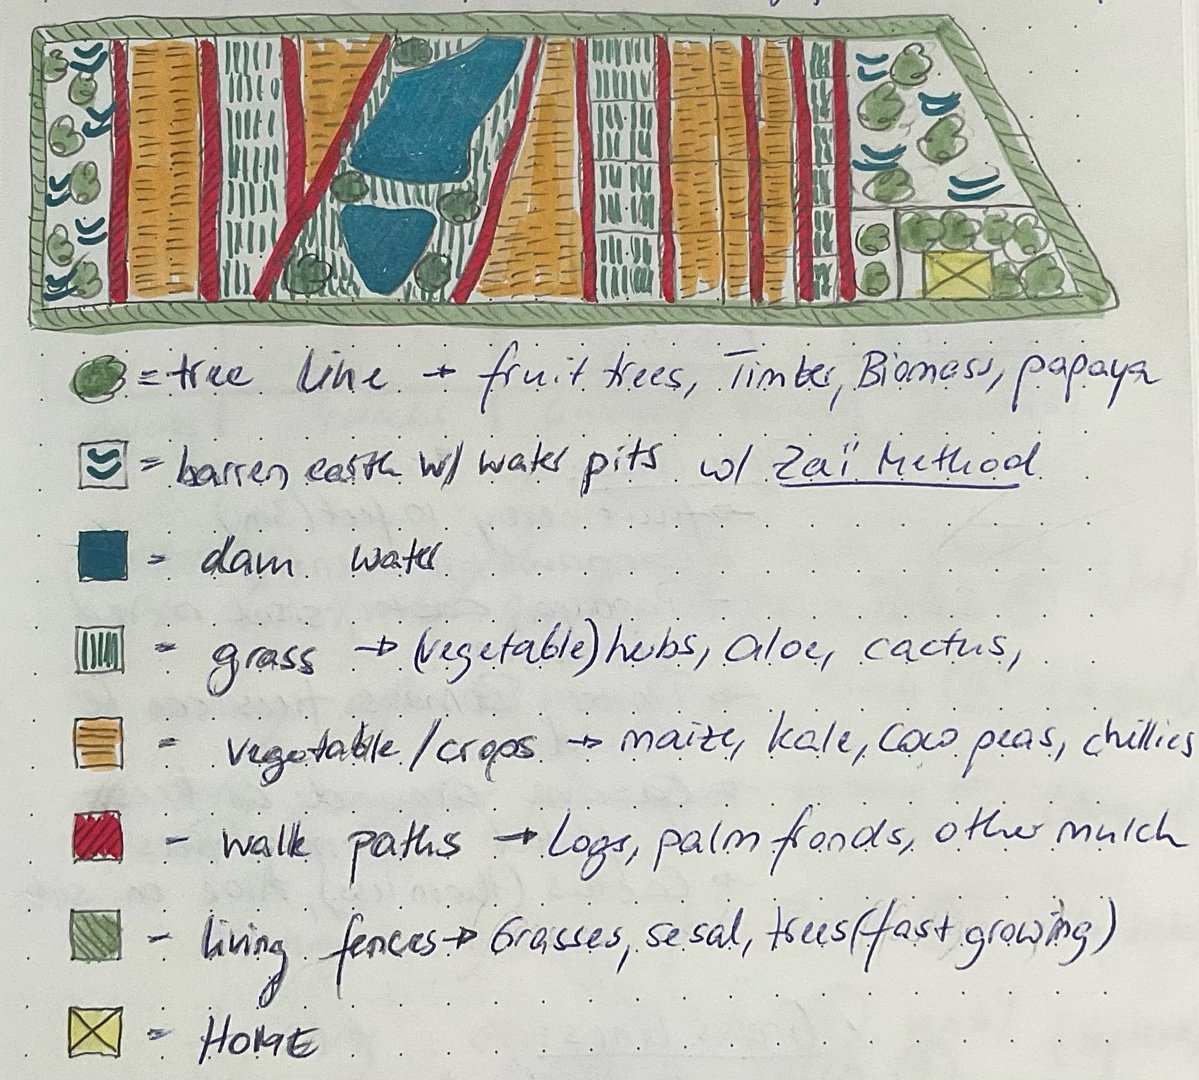 = tree line → fruit trees, Timber, Biomass, papaya
= barren earth w/ water pits w/ Zaï Method
= dam water
= grass → (vegetable) hubs, aloe, cactus,
= vegetable/crops → maize, kale, cow peas, chillies
- walk paths → Logs, palm fronds, other mulch
- living fences → Grasses, sesal, trees (fast growing)
= Home